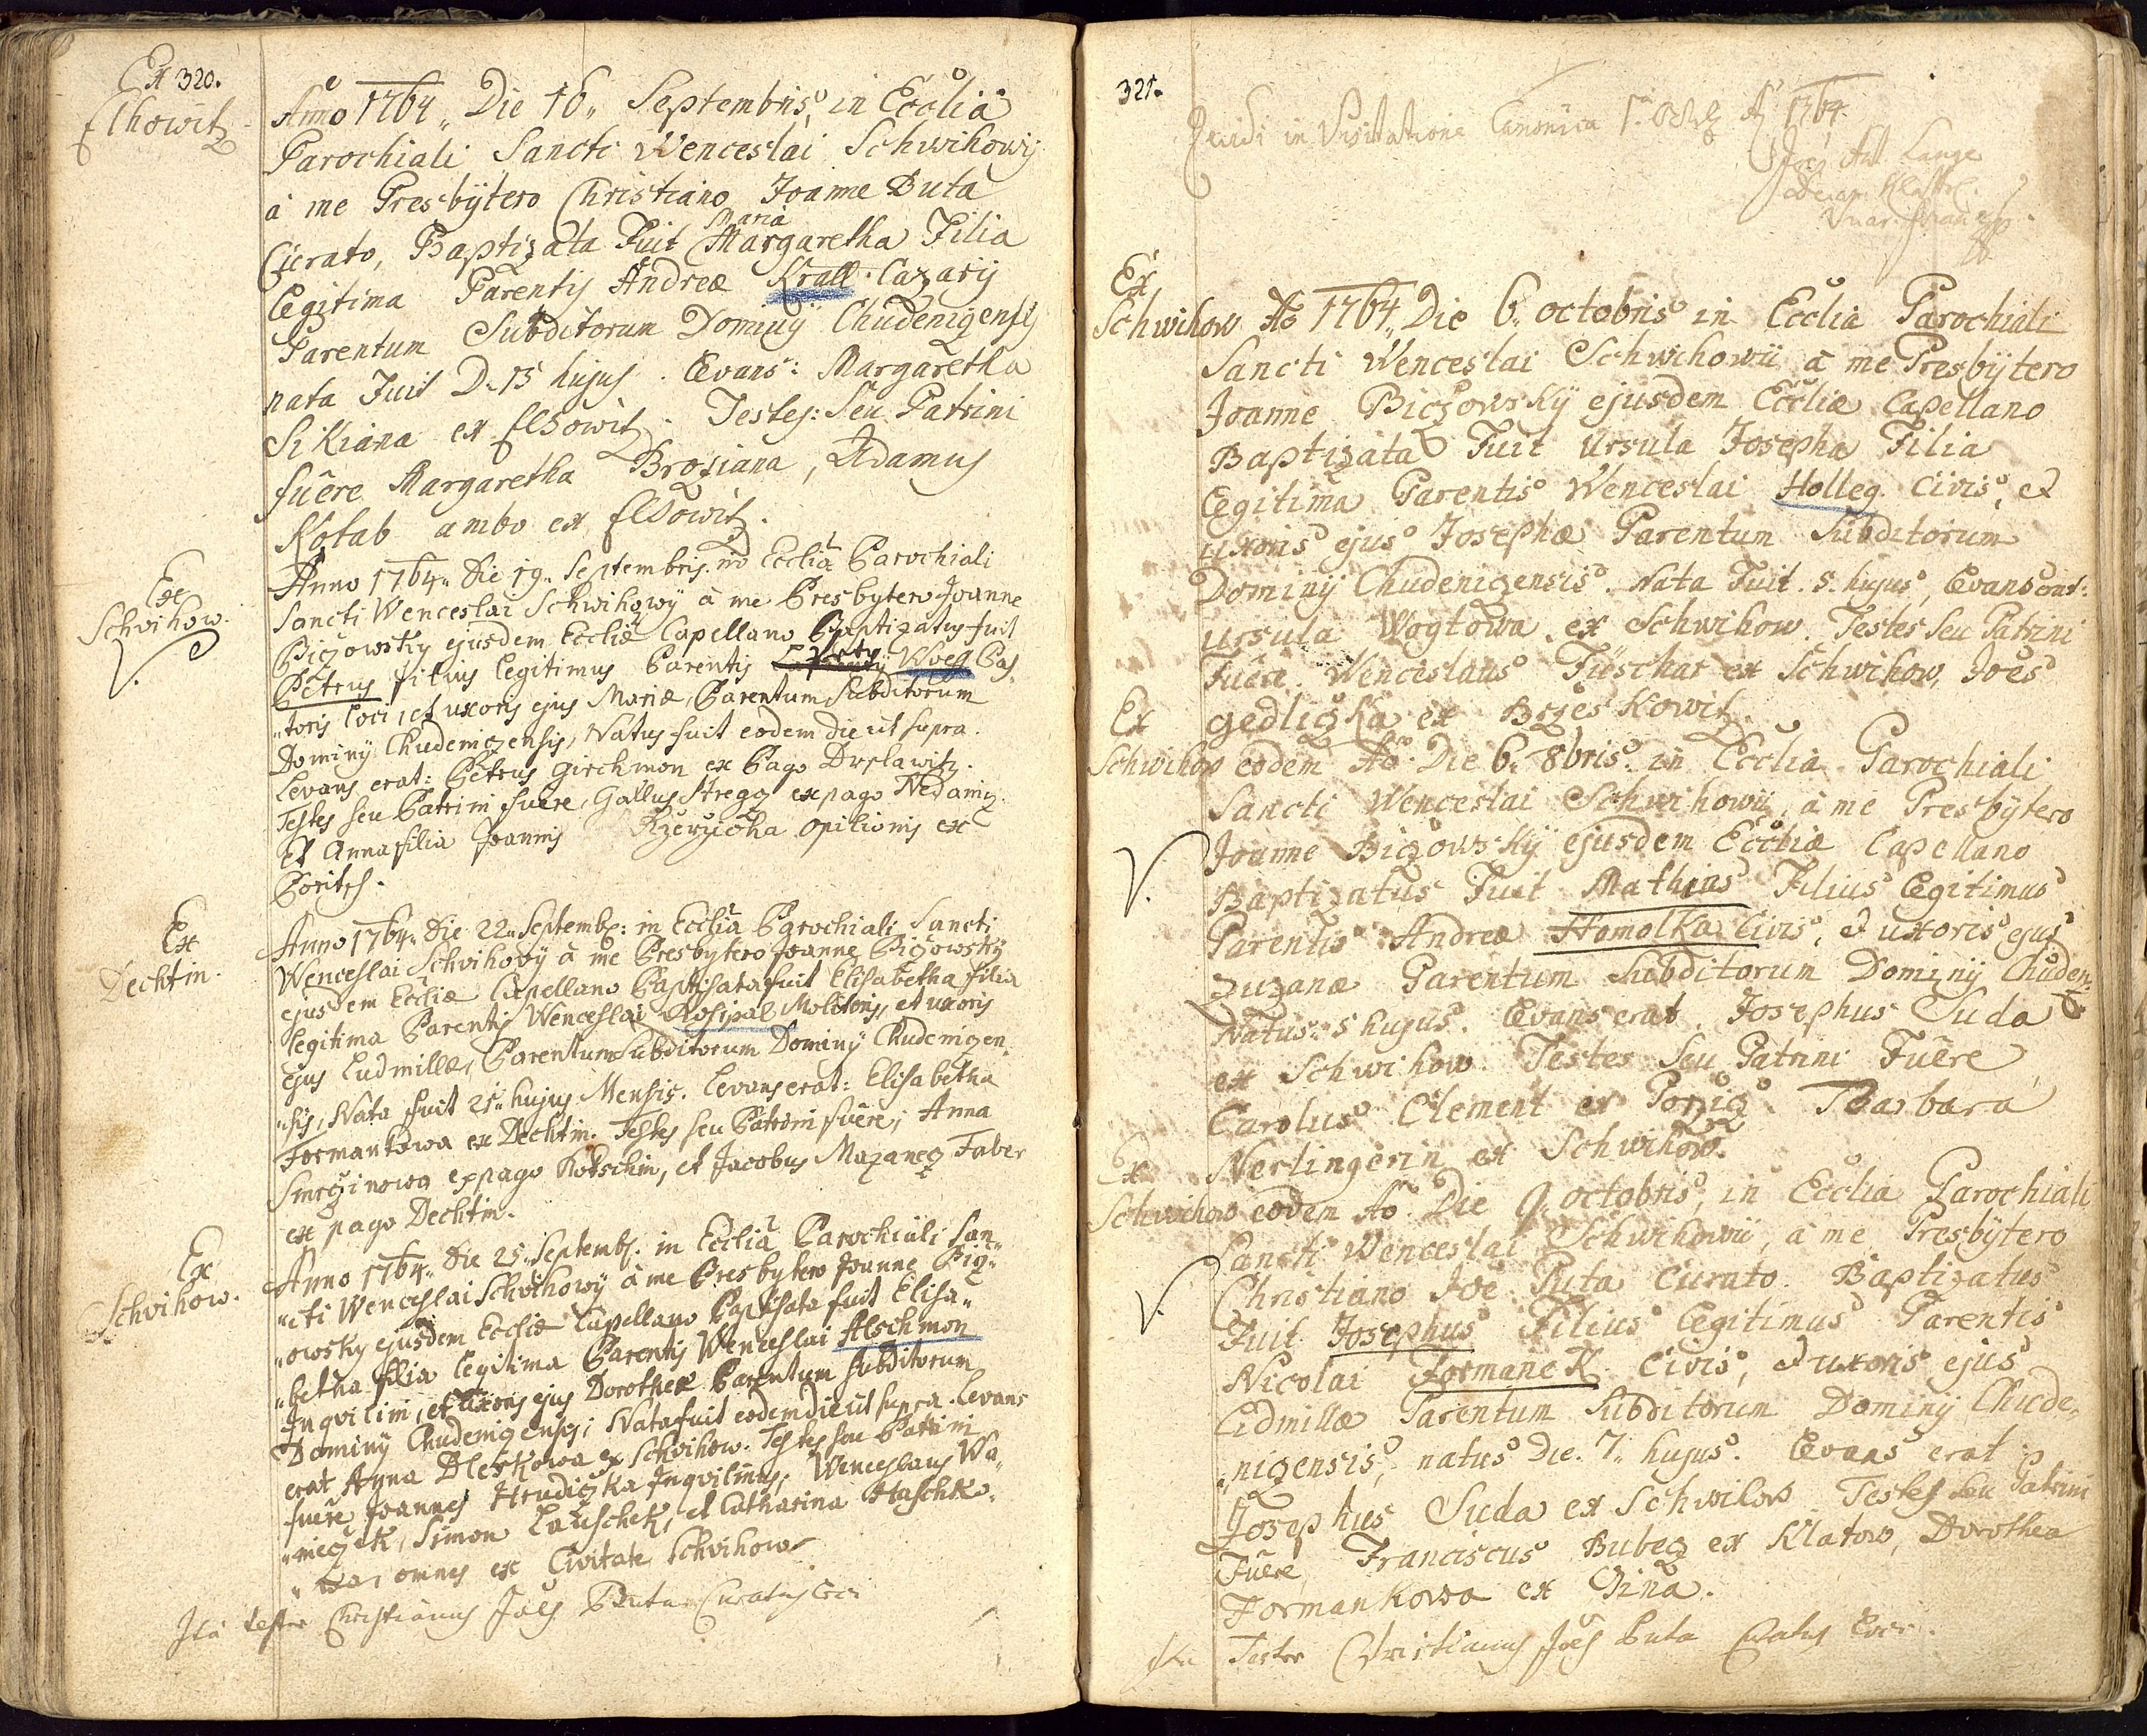 Ex 320.
Elhowitz
Anno 1764 Die 16 Septembris, in Ecclia
Parochiali Sancti Wenceslai Schwihowij
à me Presbÿtero Christiano Joanne Buta
Maria
Curato, Baptizata Fuit Margaretha Filia
Legitima Parentis Andreæ Krall Cazarij
Parentum Subditorum Dominÿ Chudenizensis
nata Fuit D. 15 hujus. Levans: Margaretha
Sikiana ex Elhowitz. Testes: Seu Patrini
fuêre Margaretha Broziana, Adamus
Kotab ambo ex Elhowitz.
Ex
Schvihow.
V.
Anno 1764 Die 19 Septembris in Ecclia Parochiali
Sancti Wenceslai Schwihowÿ à me Presbytero Joanne
Biczowsky ejusdem Eccliæ Capellano Baptizatus fuit
Petrus filius legitimus Parentis Woell Pas
"toris loci, et uxoris ejus Mariæ, Parentum Subditorum
Dominÿ Chudenizensis, Natus fuit eodem die ut supra.
Levans erat: Petrus Girchmon ex Pago Drslawitz.
Testes seu Patrini fuere, Gallus Stregz ex pago Nedaniz
Et Anna filia Joannis Rzeruicha opilionis ex
Boritsh.
Ex
Dechtin.
Anno 1764 Die 22 Septemb: in Ecclia Parochiali Sancti
Wenceslai Schvihovÿ à me Presbytero Joanne Biczowsky
ejusdem Eccliæ Capellano Baptisata fuit Elisabetha filia
legitima Parentis Wenceslai Rosipal Molitoris, et uxoris
ejus Ludmillæ, Parentum Subditorum Dominÿ Chudenizen
"sis, Nata fuit 21 hujus Mensis. Levans erat: Elisabetha
Formankowa ex Dechtin. Testes seu Patrini fuêre, Anna
Smrczinowa ex pago Kokschin, et Jacobus Mazanecz Faber
ex pago Dechtin.
Ex
Schvihow.
Anno 1764 Die 25 Septemb. in Ecclia Parochiali San"
"cti Wenceslai Schvihowÿ à me Presbytero Joanne Bicz"
"owsky ejusdem Eccliæ Capellano Baptisata fuit Elisa"
"betha filia legitima Parentis Wenceslai Alschmon
Inqvilini, et Uxoris ejus Dorotheæ Parentum Subditorum
Dominÿ Chudenizensis; Nata fuit eodem die ut supra. Levans
erat Anna Bleskowa ex Schvihow. Testes seu Patrini
fuere Joannes Hrudiczka Inqvilinus, Wenceslaus Wa"
"niczek, Simon Lauschek, et Catharina Haschko"
"wa, omnes ex Civitate Schvihow
Ita testor Christianus Joës Buta Curatus loci
321.
Vidi in Visitatione Canonica 1. 8bris Aº 1764
Joës Ant. Lange
Ex
Schwihow Aº 1764 Die 6 octobris in Ecclia Parochiali
Sancti Wenceslai Schwihowii à me Presbÿtero
Joanne Biczowskÿ ejusdem Eccliæ Capellano
Baptizata Fuit Ursula Josepha Filia
Legitima Parentis Wenceslai Holleg Civis, et
uxoris ejus Josephæ Parentum Subditorum
Dominÿ Chudenizensis. Nata Fuit 5 hujus, Levans erat:
Ursula Wogtowa ex Schwihow. Testes Seu Patrini
Fuêre Wenceslaus Fieschar ex Schwihow, Joës
Gedliczka ex Brzeskowitz.
Ex
Schwihow eodem Aº Die 6 8bris in Ecclia Parochiali
Sancti Wenceslai Schwihowii à me Presbÿtero
V.
Joanne Biczowskÿ ejusdem Eccliæ Capellano
Baptizatus Fuit Mathias Filius Legitimus
Parentis Andreæ Homolka Civis, et uxoris ejus
Zuzanæ Parentum Subditorum Dominÿ Chuden:
Natus 5 hujus. Levans erat Josephus Suda
ex Schwihow. Testes Seu Patrini Fuêre
Carolus Clement ex Porzicz. Barbara
Nerlingerin ex Schwihow.
Ex
Schwihow eodem Aº Die 9 octobris, in Ecclia Parochiali
Sancti Wenceslai Schwihowii, à me Presbÿtero
V.
Christiano Joe Puta Curato. Baptizatus
Fuit Josephus Filius Legitimus Parentis
Nicolai Formanek Civis, et uxoris ejus
Lidmillæ Parentum Subditorum Dominÿ Chude"
"nizensis, natus Die 7 hujus. Levans erat
Josephus Suda ex Schwihow Testes Seu Patrini
Fuêre, Franciscus Bubecz ex Klatow, Dorothea
Formankowa ex Gina.
Ita Testor Christianus Joës Puta Curatus Loci.